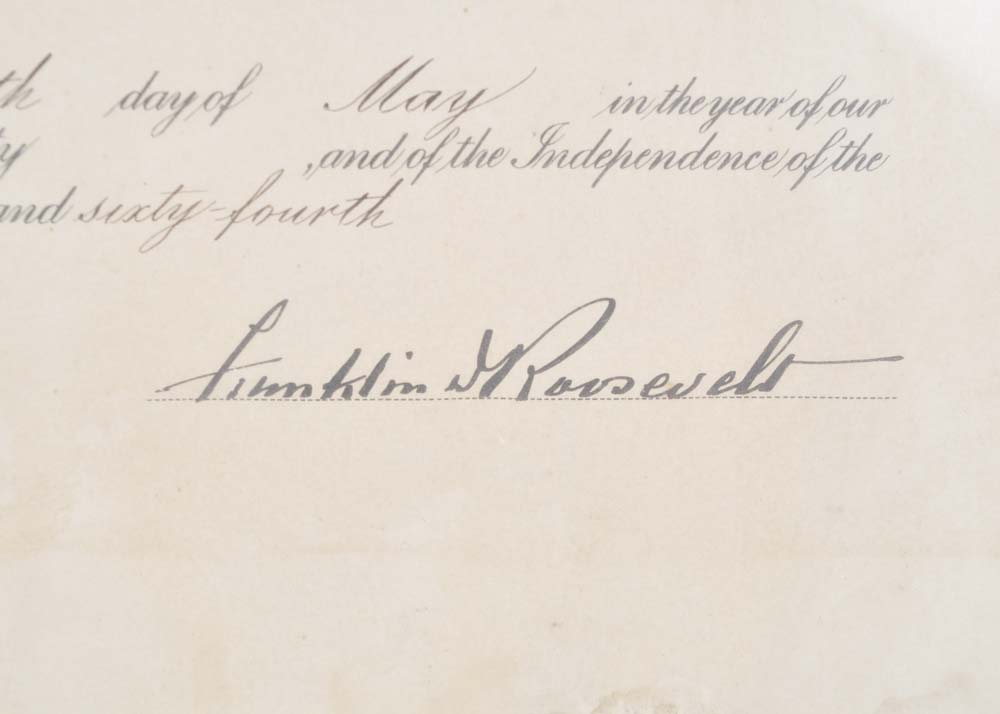 th day of May in the year of our
ty , and of the Independence of the
and sixty-fourth
Franklin D Roosevelt